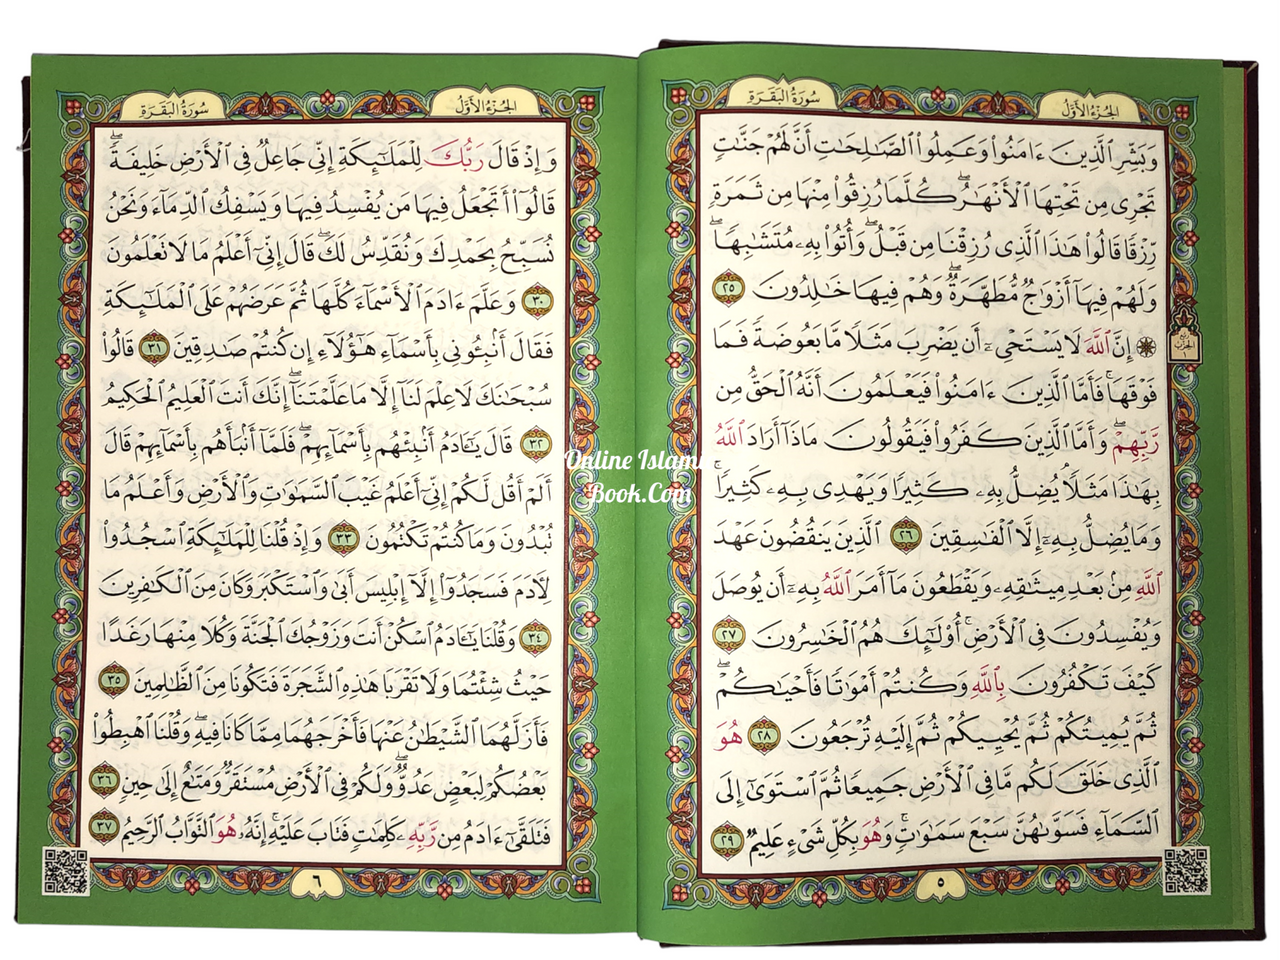 الجزء الأول
سورة البقرة
وَبَشِّرِ ٱلَّذِينَ ءَامَنُوا۟ وَعَمِلُوا۟ ٱلصَّـٰلِحَـٰتِ أَنَّ لَهُمْ جَنَّـٰتٍ
تَجْرِى مِن تَحْتِهَا ٱلْأَنْهَـٰرُ ۖ كُلَّمَا رُزِقُوا۟ مِنْهَا مِن ثَمَرَةٍ
رِّزْقًا قَالُوا۟ هَـٰذَا ٱلَّذِى رُزِقْنَا مِن قَبْلُ ۖ وَأُتُوا۟ بِهِۦ مُتَشَـٰبِهًا ۖ
وَلَهُمْ فِيهَآ أَزْوَٰجٌ مُّطَهَّرَةٌ ۖ وَهُمْ فِيهَا خَـٰلِدُونَ ٢٥
۞ إِنَّ ٱللَّهَ لَا يَسْتَحْىِۦٓ أَن يَضْرِبَ مَثَلًا مَّا بَعُوضَةً فَمَا
فَوْقَهَا ۚ فَأَمَّا ٱلَّذِينَ ءَامَنُوا۟ فَيَعْلَمُونَ أَنَّهُ ٱلْحَقُّ مِن
رَّبِّهِمْ ۖ وَأَمَّا ٱلَّذِينَ كَفَرُوا۟ فَيَقُولُونَ مَاذَآ أَرَادَ ٱللَّهُ
بِهَـٰذَا مَثَلًا ۘ يُضِلُّ بِهِۦ كَثِيرًا وَيَهْدِى بِهِۦ كَثِيرًا ۚ
وَمَا يُضِلُّ بِهِۦٓ إِلَّا ٱلْفَـٰسِقِينَ ٢٦ ٱلَّذِينَ يَنقُضُونَ عَهْدَ
ٱللَّهِ مِنۢ بَعْدِ مِيثَـٰقِهِۦ وَيَقْطَعُونَ مَآ أَمَرَ ٱللَّهُ بِهِۦٓ أَن يُوصَلَ
وَيُفْسِدُونَ فِى ٱلْأَرْضِ ۚ أُو۟لَـٰٓئِكَ هُمُ ٱلْخَـٰسِرُونَ ٢٧
كَيْفَ تَكْفُرُونَ بِٱللَّهِ وَكُنتُمْ أَمْوَٰتًا فَأَحْيَـٰكُمْ ۖ
ثُمَّ يُمِيتُكُمْ ثُمَّ يُحْيِيكُمْ ثُمَّ إِلَيْهِ تُرْجَعُونَ ٢٨ هُوَ
ٱلَّذِى خَلَقَ لَكُم مَّا فِى ٱلْأَرْضِ جَمِيعًا ثُمَّ ٱسْتَوَىٰٓ إِلَى
ٱلسَّمَآءِ فَسَوَّىٰهُنَّ سَبْعَ سَمَـٰوَٰتٍ ۚ وَهُوَ بِكُلِّ شَىْءٍ عَلِيمٌ ٢٩
٥
الجزء الأول
سورة البقرة
وَإِذْ قَالَ رَبُّكَ لِلْمَلَـٰٓئِكَةِ إِنِّى جَاعِلٌ فِى ٱلْأَرْضِ خَلِيفَةً ۖ
قَالُوٓا۟ أَتَجْعَلُ فِيهَا مَن يُفْسِدُ فِيهَا وَيَسْفِكُ ٱلدِّمَآءَ وَنَحْنُ
نُسَبِّحُ بِحَمْدِكَ وَنُقَدِّسُ لَكَ ۖ قَالَ إِنِّىٓ أَعْلَمُ مَا لَا تَعْلَمُونَ
٣٠ وَعَلَّمَ ءَادَمَ ٱلْأَسْمَآءَ كُلَّهَا ثُمَّ عَرَضَهُمْ عَلَى ٱلْمَلَـٰٓئِكَةِ
فَقَالَ أَنۢبِـُٔونِى بِأَسْمَآءِ هَـٰٓؤُلَآءِ إِن كُنتُمْ صَـٰدِقِينَ ٣١ قَالُوا۟
سُبْحَـٰنَكَ لَا عِلْمَ لَنَآ إِلَّا مَا عَلَّمْتَنَآ ۖ إِنَّكَ أَنتَ ٱلْعَلِيمُ ٱلْحَكِيمُ
٣٢ قَالَ يَـٰٓـَٔادَمُ أَنۢبِئْهُم بِأَسْمَآئِهِمْ ۖ فَلَمَّآ أَنۢبَأَهُم بِأَسْمَآئِهِمْ قَالَ
أَلَمْ أَقُل لَّكُمْ إِنِّىٓ أَعْلَمُ غَيْبَ ٱلسَّمَـٰوَٰتِ وَٱلْأَرْضِ وَأَعْلَمُ مَا
تُبْدُونَ وَمَا كُنتُمْ تَكْتُمُونَ ٣٣ وَإِذْ قُلْنَا لِلْمَلَـٰٓئِكَةِ ٱسْجُدُوا۟
لِـَٔادَمَ فَسَجَدُوٓا۟ إِلَّآ إِبْلِيسَ أَبَىٰ وَٱسْتَكْبَرَ وَكَانَ مِنَ ٱلْكَـٰفِرِينَ
٣٤ وَقُلْنَا يَـٰٓـَٔادَمُ ٱسْكُنْ أَنتَ وَزَوْجُكَ ٱلْجَنَّةَ وَكُلَا مِنْهَا رَغَدًا
حَيْثُ شِئْتُمَا وَلَا تَقْرَبَا هَـٰذِهِ ٱلشَّجَرَةَ فَتَكُونَا مِنَ ٱلظَّـٰلِمِينَ ٣٥
فَأَزَلَّهُمَا ٱلشَّيْطَـٰنُ عَنْهَا فَأَخْرَجَهُمَا مِمَّا كَانَا فِيهِ ۖ وَقُلْنَا ٱهْبِطُوا۟
بَعْضُكُمْ لِبَعْضٍ عَدُوٌّ ۖ وَلَكُمْ فِى ٱلْأَرْضِ مُسْتَقَرٌّ وَمَتَـٰعٌ إِلَىٰ حِينٍ ٣٦
فَتَلَقَّىٰٓ ءَادَمُ مِن رَّبِّهِۦ كَلِمَـٰتٍ فَتَابَ عَلَيْهِ ۚ إِنَّهُۥ هُوَ ٱلتَّوَّابُ ٱلرَّحِيمُ ٣٧
٦
Online Islamic
Book.Com